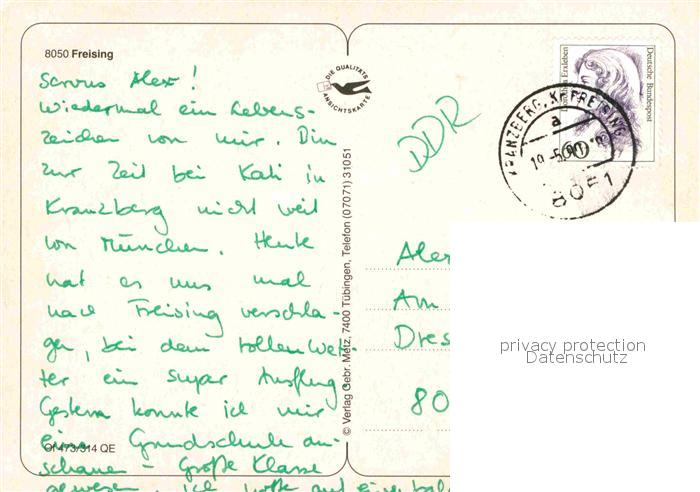 8050 Freising
Servus Alex!
Wiedermal ein Lebens-
zeichen von mir. Bin
zur Zeit bei Kati in
Kranzberg nicht weit
von München. Heute
hat es uns mal
nach Freising verschla-
gen, bei dem tollen Wet-
ter ein super Ausflug
Gestern konnte ich mir
eine Grundschule an-
schauen - Große Klasse
gewesen. Ich hoffe auf
Of 473/314 QE
© Verlag Gebr. Metz, 7400 Tübingen, Telefon (07071) 31051
DIE QUALITÄTS
ANSICHTSKARTE
DDR
Erxleben
Deutsche Bundespost
KRANZBERG, KR FREISING
a
8051
Alex
Am
Dres
80
privacy protection
Datenschutz